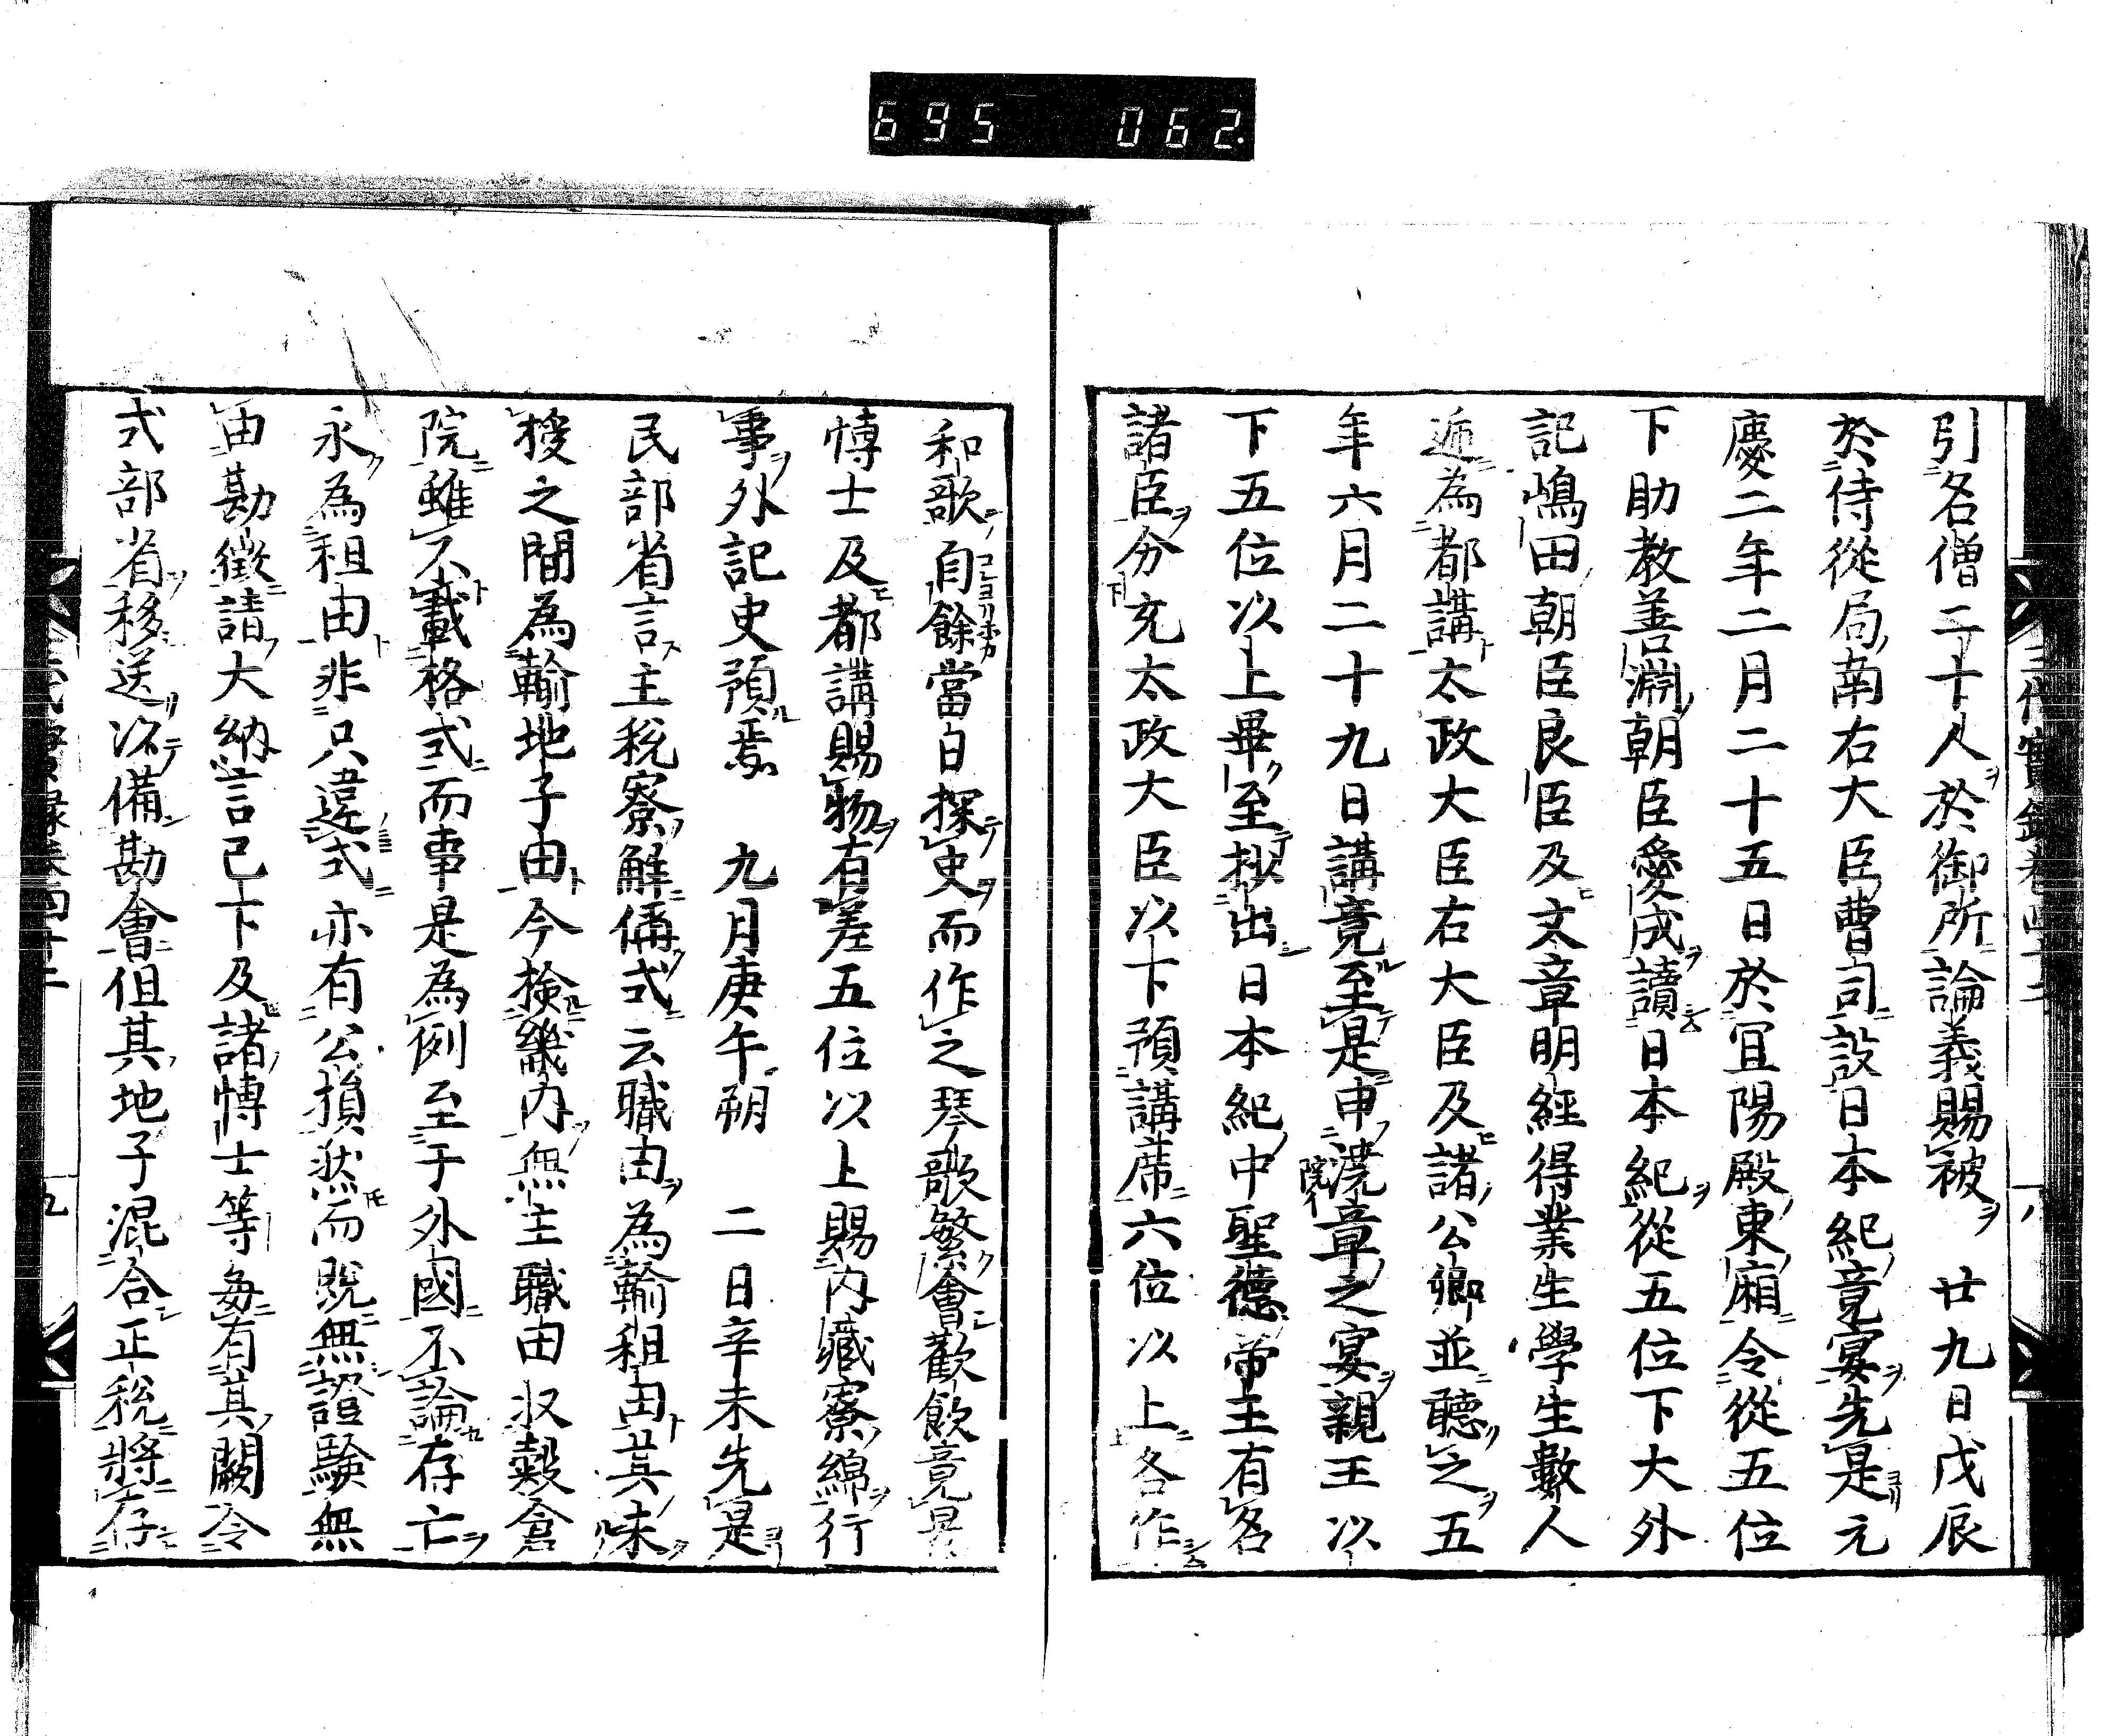 695 062.
引名僧二十人於御所論義賜被 廿九日戊辰
於侍從局南右大臣曹司設日本紀竟宴先是元
慶二年二月二十五日於宜陽殿東廂令從五位
下助教善淵朝臣愛成讀日本紀從五位下大外
記嶋田朝臣良臣及文章明經得業生學生數人
遞為都講太政大臣右大臣及諸公卿並聽之五
年六月二十九日講竟至是申澆章之宴親王以
下五位以上畢至抄出日本紀中聖德帝王有名
諸臣分充太政大臣以下預講席六位以上各作
和歌自餘當日探史而作之琴歌繁會歡飲竟景
博士及都講賜物有差五位以上賜內藏寮綿行
事外記史預焉 九月庚午朔 二日辛未先是
民部省言主稅寮解偁式云職田為輸租田其未
授之間為輸地子田今檢畿內無主職田収穀倉
院雖不載格式而事是為例至于外國不論存亡
永為租田非只違式亦有公損然而既無證驗無
由勘徵請大納言已下及諸博士等每有其闕令
式部省移送以備勘會但其地子混合正稅將存